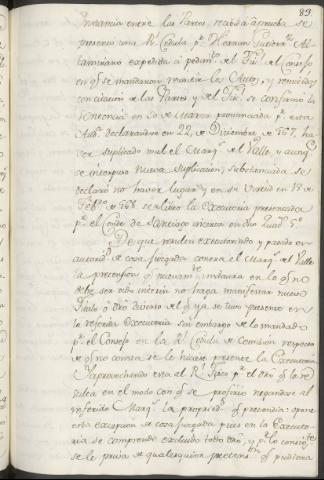 89
Instancia entre las Partes, recivida aprueba se
presento una Rl. Cedula pr. Hernan Gutierrez Al-
tamirano expedida á pedimto. del Fisl. del Consejo
en qe. se mandaron remitir los Autos, y remitidos
con citacion de las Partes y del Fisl. se confirmo la
sentencia en de pronunciada pr. esta
Auda. declarandose en 22, de Diciembre de 567, ha-
ver suplicado mal el Marqs. del Valle, y aunqe.
se interpuso nueva suplicacion, substanciada se
declaró no haver lugar, y en su virtud en 18 de
Febro. de 568 se libro la Executoria presentada
pr. el Conde de Santiago en dho Quadno. 5o.
De que resulta executoriado, y pasado en
autoridd. de cosa juzgada contra el Marqs. del Valle
la pretension qe. nuevamte. instaura en lo qe. no
debe ser oido interin no haga manifestar nuevo
Titulo ó dro. diverso del qe. ya se tuvo presente en
la referida Executoria sin embargo de lo mandado
pr. el Consejo en la Rl. Cedula de comision respecto
a qe. no consta se le hiciese presente la Executoria.
Y aprovechando esta al Rl. Fisco pr. el dro qe. lo re-
ditua en el modo con qe. se profirio negandose al
referido Marqs. la propriedd. qe. pretendia: opone
esta excepcion de cosa juzgada pues en la Executo-
ria se comprende excluido todo dro, y pr. lo consigte.
se le priva de qualesquiera pretensn. qe. pudiera